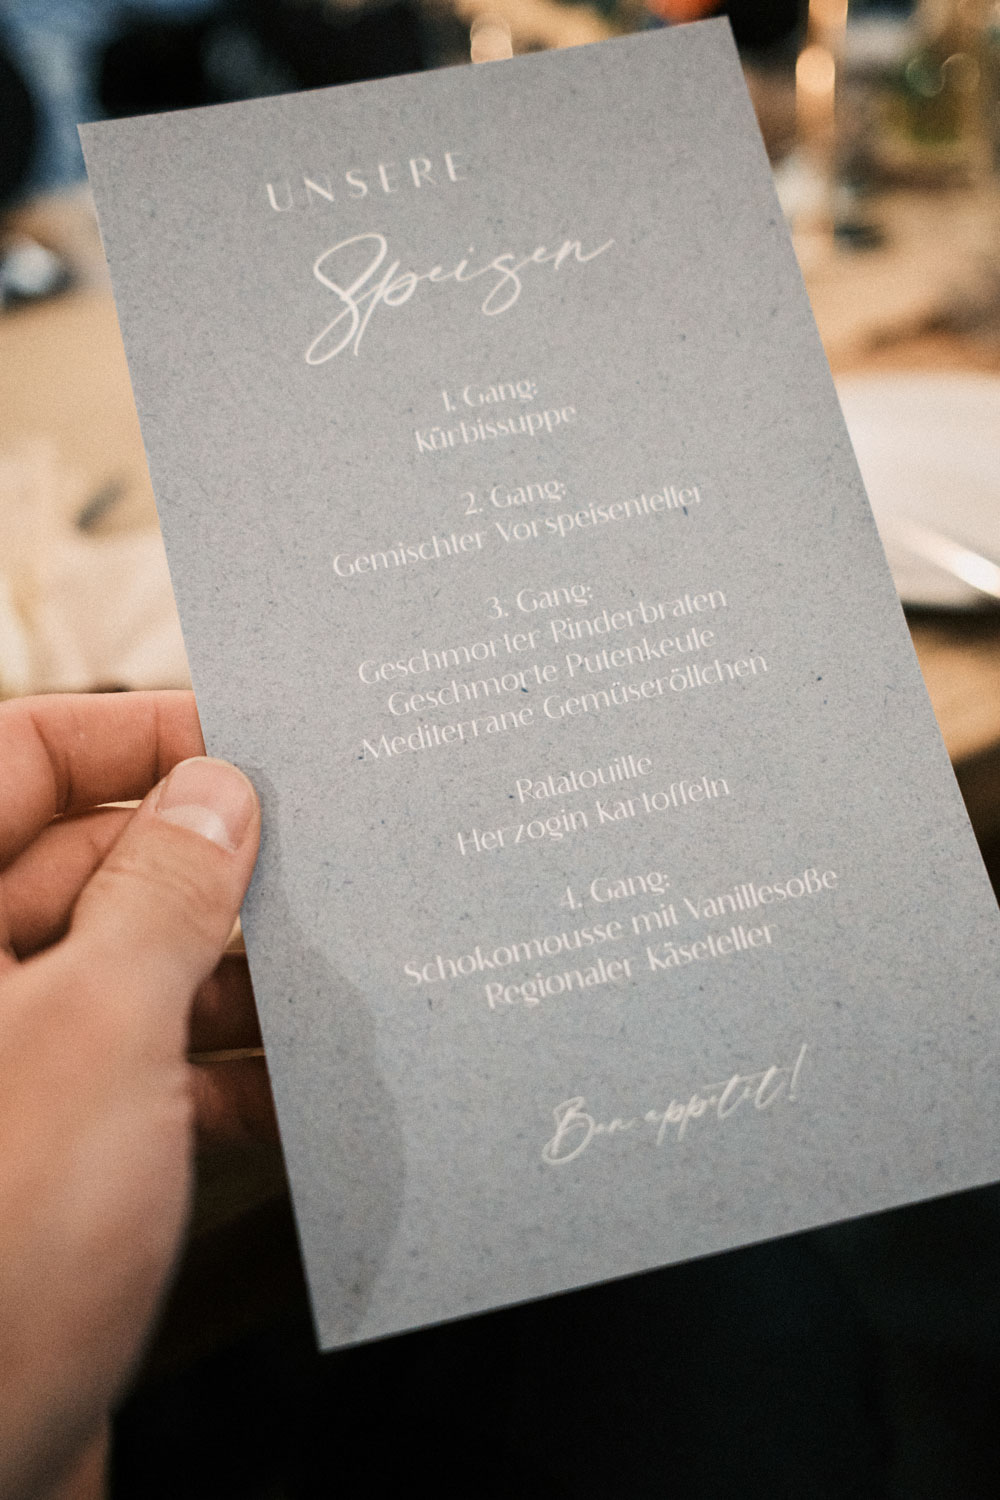 UNSERE
Speisen
1. Gang:
Kürbissuppe
2. Gang:
Gemischter Vorspeisenteller
3. Gang:
Geschmorter Rinderbraten
Geschmorte Putenkeule
Mediterrane Gemüseröllchen
Ratatouille
Herzogin Kartoffeln
4. Gang:
Schokomousse mit Vanillesoße
Regionaler Käseteller
Bon appetit!